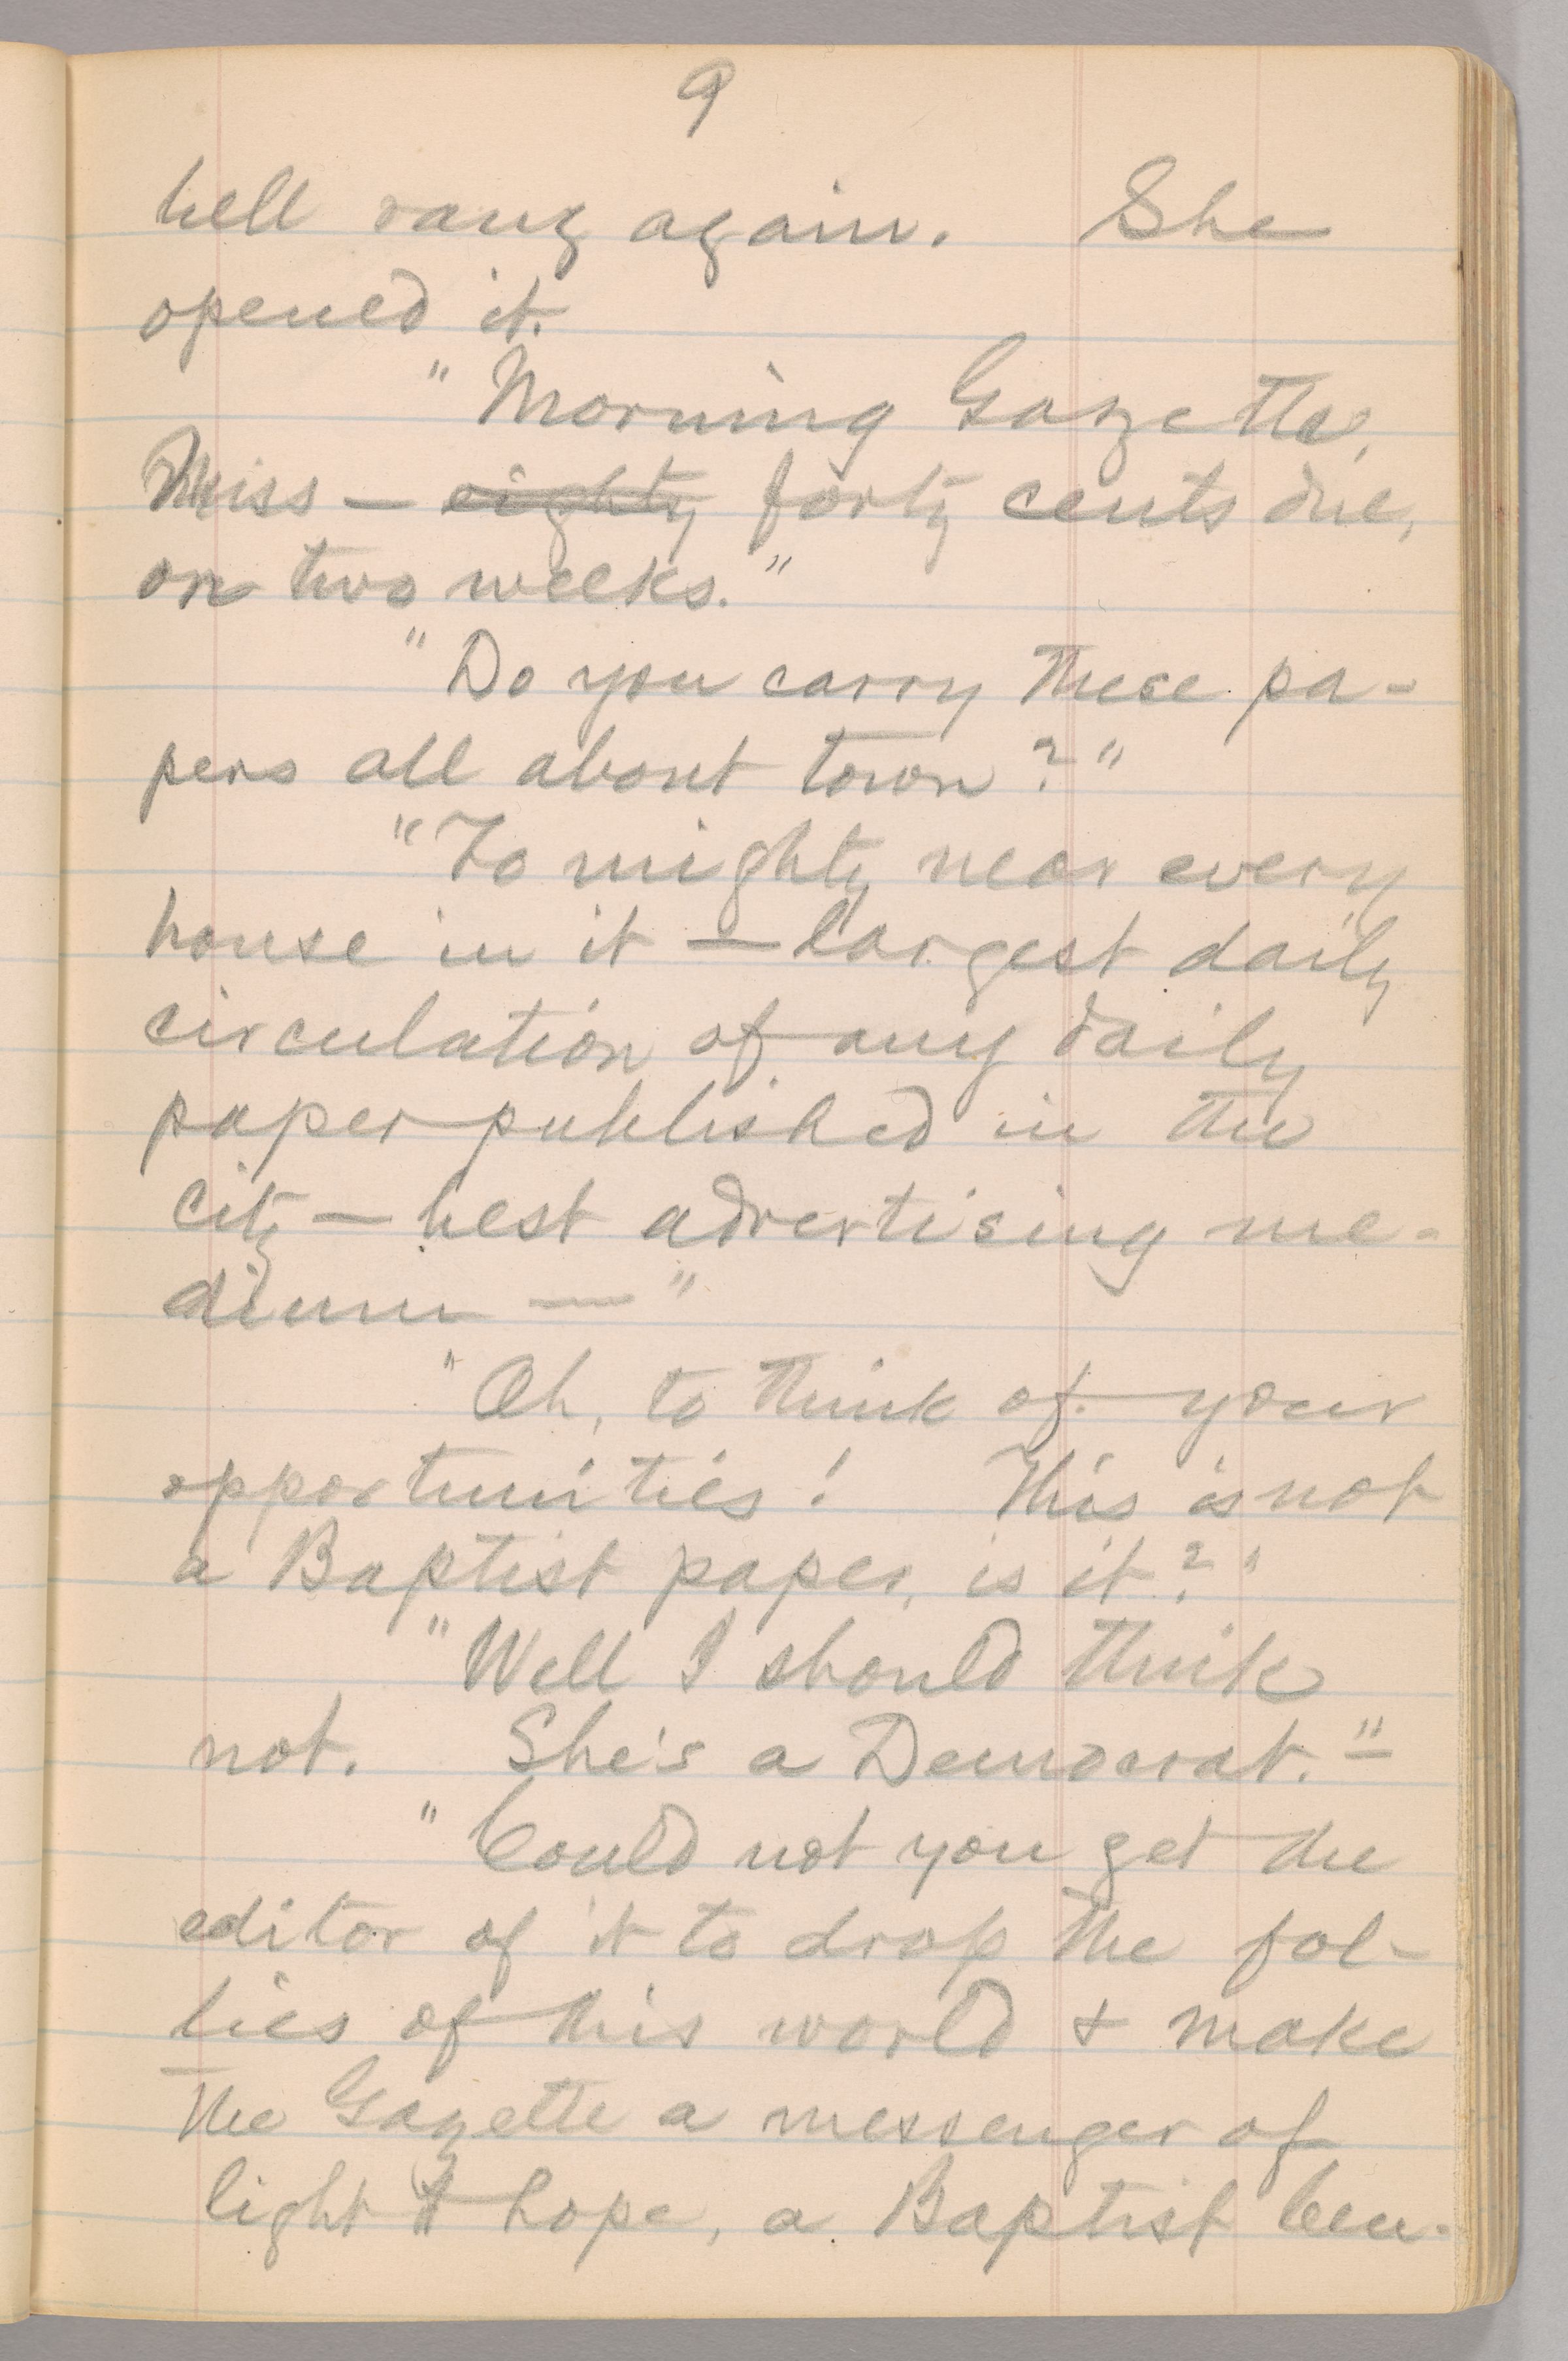 9
bell rang again. She
opened it.
"Morning Gazette,
Miss — eighty forty cents due,
on two weeks."
"Do you carry these pa-
pers all about town?"
"To mighty near every
house in it — largest daily
circulation of any daily
paper published in the
city — best advertising me-
dium —"
"Oh, to think of your
opportunities! This is not
a Baptist paper, is it?"
"Well I should think
not. She's a Democrat."
"Could not you get the
editor of it to drop the fol-
lies of this world & make
the Gazette a messenger of
light & hope, a Baptist ben-